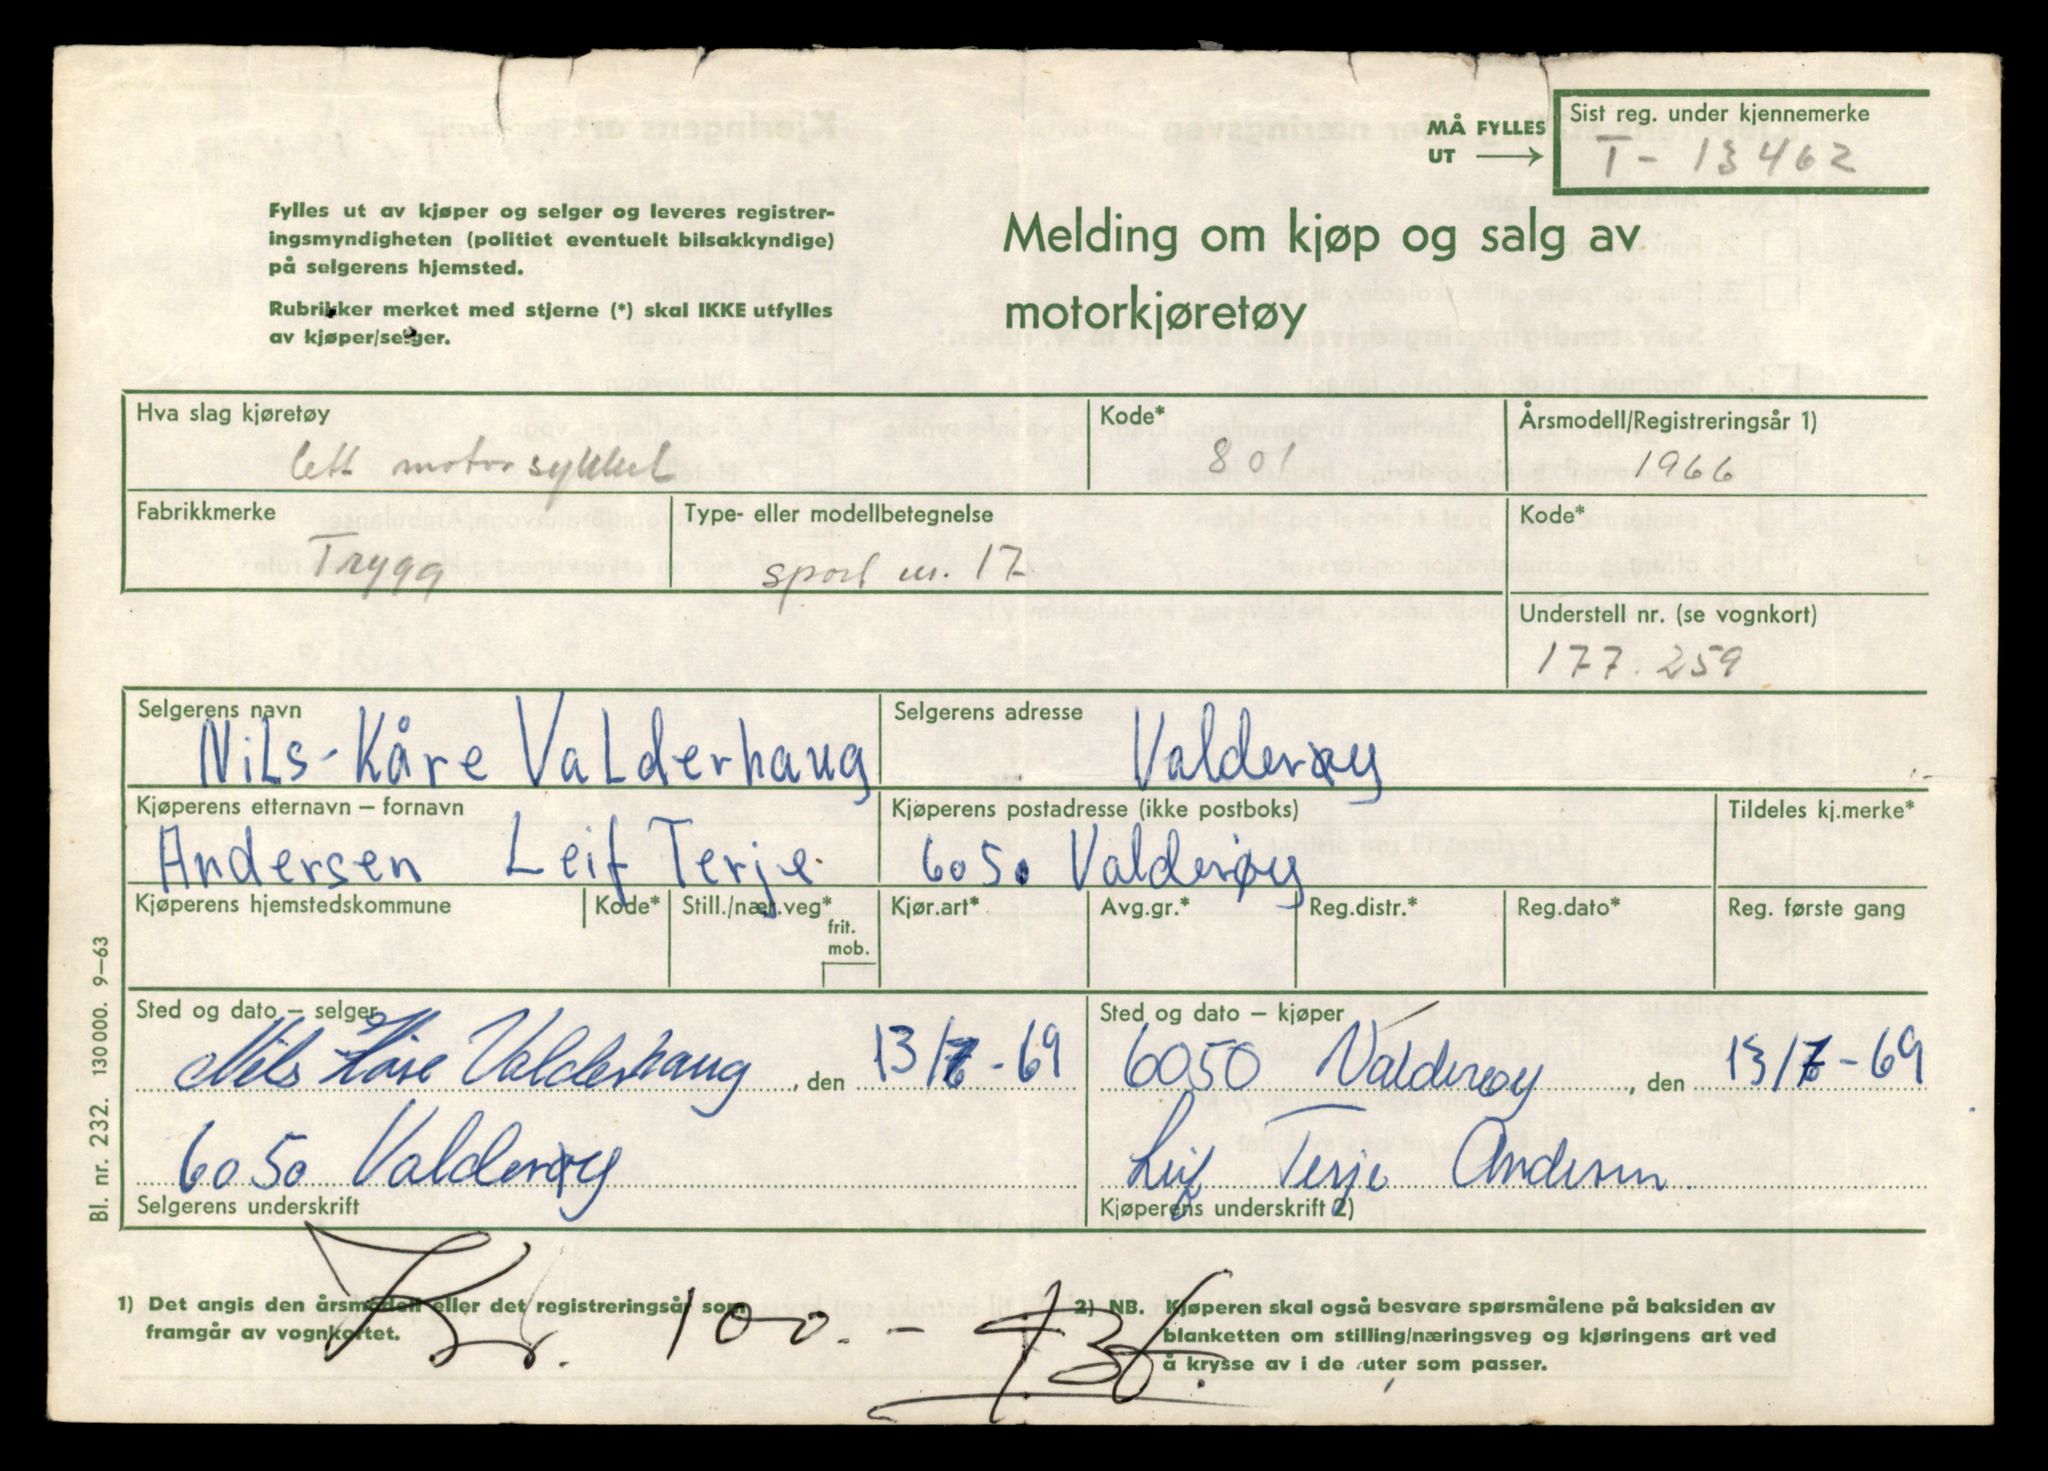 MÅ FYLLES
UT
Sist reg. under kjennemerke
T- 13462
Fylles ut av kjøper og selger og leveres registrer-
ingsmyndigheten (politiet eventuelt bilsakkyndige)
på selgerens hjemsted.
Rubrikker merket med stjerne (*) skal IKKE utfylles
av kjøper/selger.
Melding om kjøp og salg av
motorkjøretøy
Hva slag kjøretøy
lett motorsykkel
Kode*
801
Årsmodell/Registreringsår 1)
1966
Fabrikkmerke
Trygg
Type- eller modellbetegnelse
sport m. 17
Kode*
Understell nr. (se vognkort)
177.259
Selgerens navn
Nils-Kåre Valderhaug
Selgerens adresse
Valderøy
Kjøperens etternavn – fornavn
Andersen Leif Terje
Kjøperens postadresse (ikke postboks)
6050 Valderøy
Tildeles kj.merke*
Kjøperens hjemstedskommune
Kode*
Still./nær.veg*
frit.
mob.
Kjør.art*
Avg.gr.*
Reg.distr.*
Reg.dato*
Reg. første gang
Sted og dato – selger
Nils Kåre Valderhaug , den 13/7-69
6050 Valderøy
Selgerens underskrift
Sted og dato – kjøper
6050 Valderøy , den 13/7-69
Leif Terje Andersen
Kjøperens underskrift 2)
Kr. 100.-
1) Det angis den årsmodell eller det registreringsår som
framgår av vognkortet.
2) NB. Kjøperen skal også besvare spørsmålene på baksiden av
blanketten om stilling/næringsveg og kjøringens art ved
å krysse av i de ruter som passer.
Bl. nr. 232. 130000. 9–63